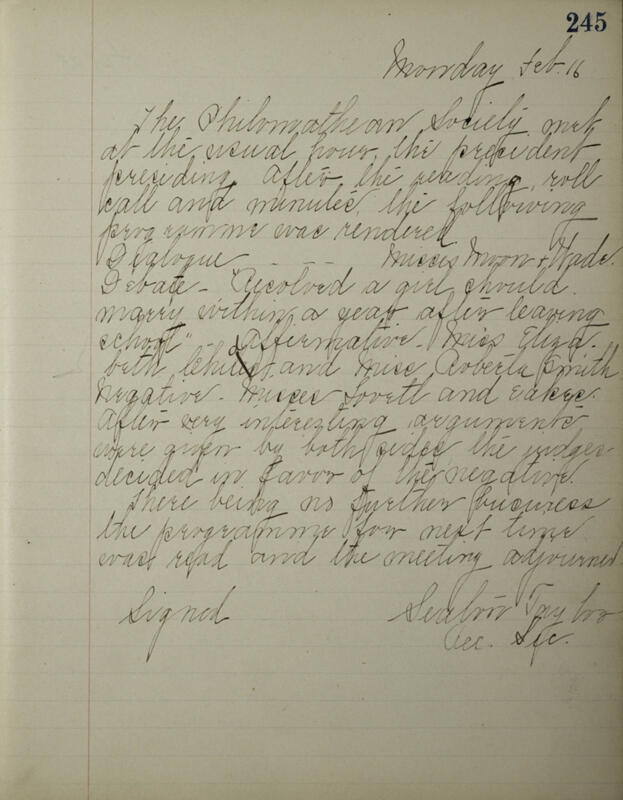 245
Monday Feb. 16
The Philomathean Society met
at the usual hour, the president
presiding. After the reading, roll
call and minutes, the following
programme was rendered
Dialogue - - - - Misses Moon + Wade.
Debate - "Resolved a girl should
marry within a year after leaving
school" Affirmative - Miss Eliza-
beth Childs, and Miss Roberta Smith
Negative - Misses Lovett and Eakes.
After very interesting arguments
were given by both sides the judges
decided in favor of the negative.
There being no further business
the programme for next time
was read and the meeting adjourned
Signed Taylor
Rec. Sec.